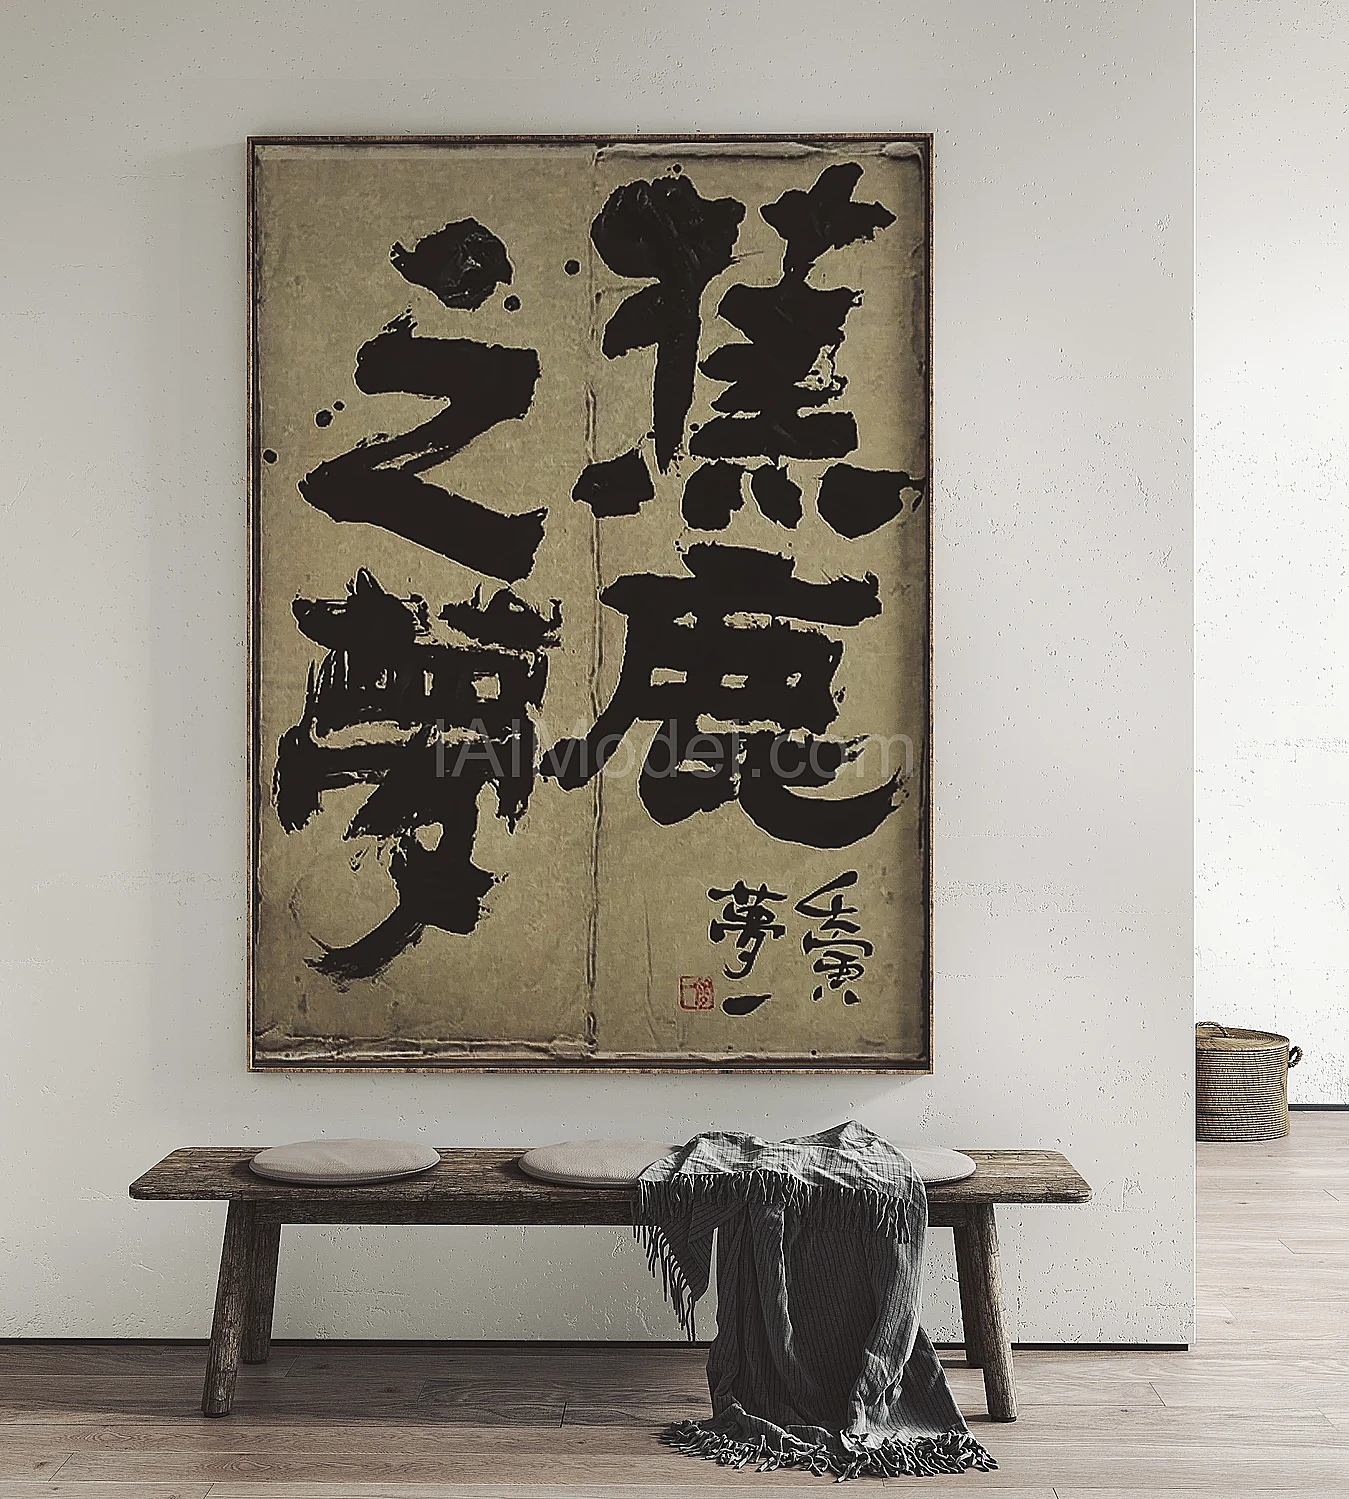 蕉鹿
之夢
壬寅
夢一
IAIModel.com